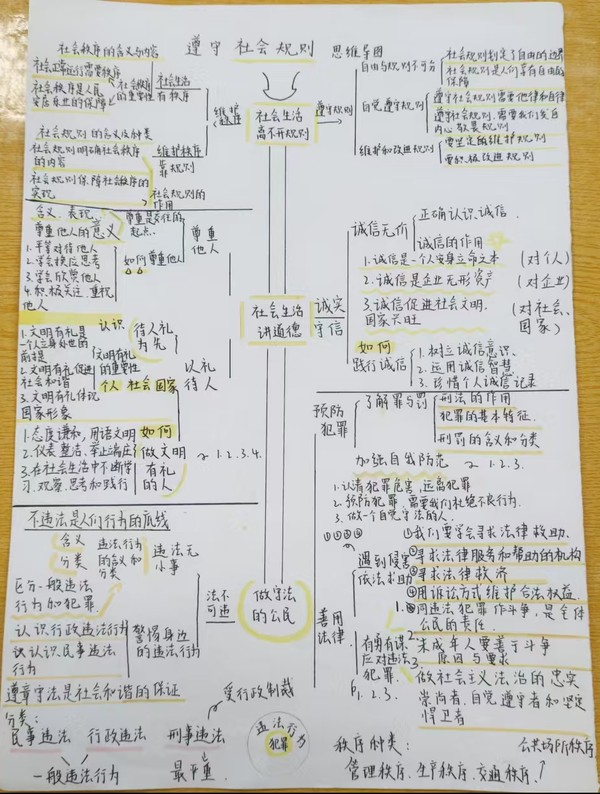 遵守 社会规则 思维导图
社会秩序的含义与内容
社会正常运行需要秩序
社会秩序是人民
安居乐业的保障
社会秩序
的重要性
社会生活
有秩序
维护
秩序
社会规则的含义及种类
社会规则明确社会秩序
的内容
社会规则保障社会秩序的
实现
维护秩序
靠规则
社会规则的
作用
社会生活
离不开规则
遵守规则
自由与规则不可分
社会规则划定了自由的边界
社会规则是人们享有自由的
保障
自觉遵守规则
遵守社会规则需要他律和自律
遵守社会规则,需要我们发自
内心敬畏规则
维护和改进规则
要坚定的维护规则
要积极改进规则
含义、表现
尊重他人的意义
尊重是交往的
起点
1.平等对待他人
2.学会换位思考
3.学会欣赏他人
4.积极关注、重视
他人
如何尊重他人
尊重
他人
社会生活
讲道德
诚实
守信
诚信无价
正确认识诚信
诚信的作用
1.诚信是一个人安身立命之本 (对个人)
2.诚信是企业无形资产 (对企业)
3.诚信促进社会文明、
国家兴旺
(对社会、
国家)
如何
践行诚信
1.树立诚信意识、
2.运用诚信智慧
3.珍惜个人诚信记录
1.文明有礼是
一个人立身处世的
前提
2.文明有礼促进
社会和谐
3.文明有礼体现
国家形象
认识
待人礼
为先
文明有礼
的重要性
个人 社会 国家
以礼
待人
1.态度谦和,用语文明
2.仪表整洁、举止端庄
3.在社会生活中不断学
习、观察、思考和践行
如何
做文明
有礼
的人
~1.2.3.4.
预防
犯罪
了解罪与罚
刑法的作用
犯罪的基本特征
刑罚的含义和分类
加强自我防范 ~1.2.3.
1.认清犯罪危害,远离犯罪
2.预防犯罪,需要我们杜绝不良行为.
3.做一个自觉守法的人.
不违法是人们行为的底线
含义
分类
违法行为
的含义和
分类
违法无
小事
区分一般违法
行为和犯罪
认识行政违法行为
认识民事违法
行为
警惕身边
的违法行为
遵章守法是社会和谐的保证
法不
可违
做守法
的公民
善用
法律
①②③④
遇到侵害
依法求助
①我们要学会寻求法律救助.
②寻求法律服务和帮助的机构
③寻求法律救济
④用诉讼方式维护合法权益.
有勇有谋
应对违法
犯罪
1.2.3.
1.同违法犯罪作斗争,是全体
公民的责任
2.未成年人要善于斗争
原因与要求
3.做社会主义法治的忠实
崇尚者、自觉遵守者和坚定
捍卫者
分类:
民事违法 行政违法 刑事违法
受行政制裁
一般违法行为 最严重
违法行为
犯罪
秩序种类: 公共场所秩序
管理秩序、生产秩序、交通秩序、